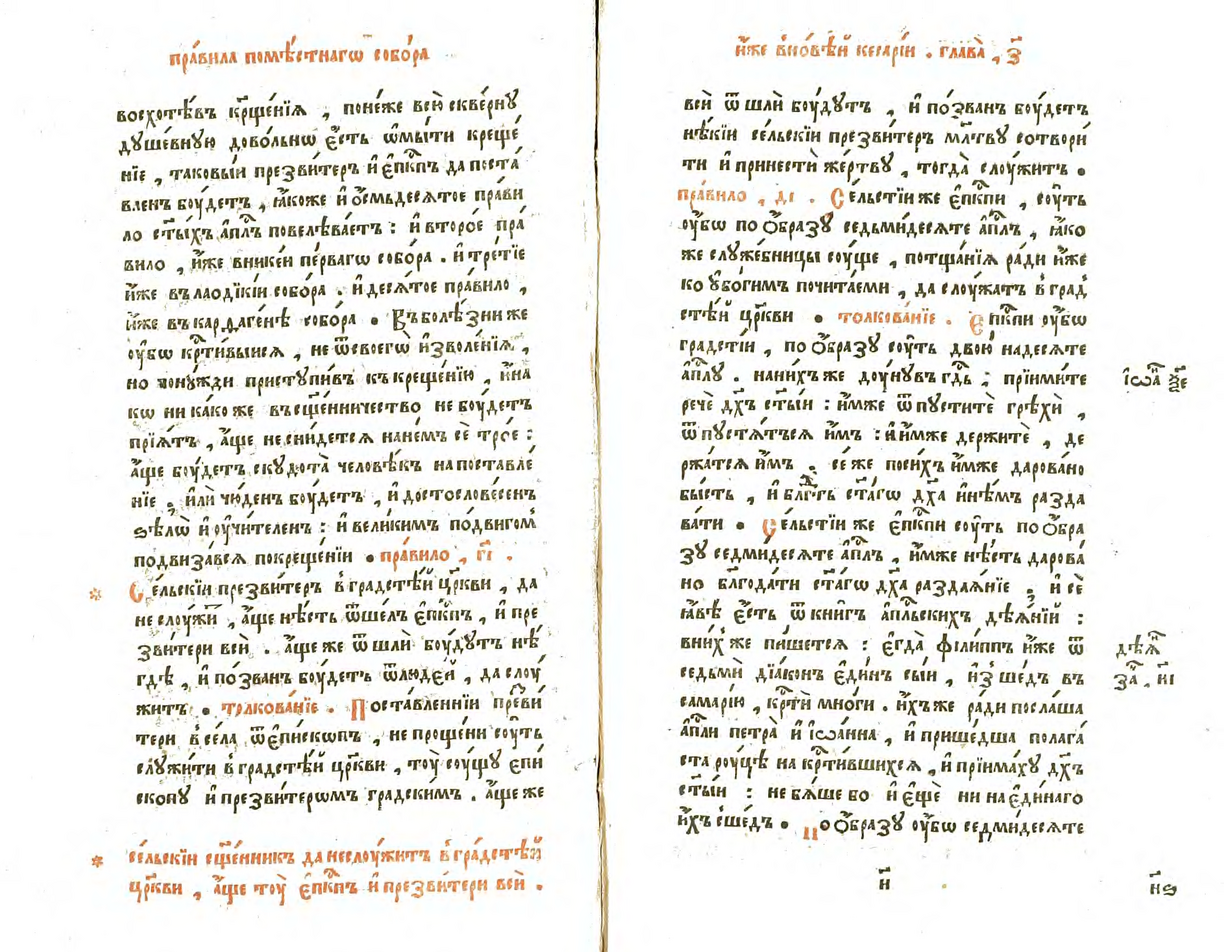 пра́вила помѣ́стнагѡ собо́ра
восхотѣ́въ кр҃ще́нїѧ , поне́же всю̀ скве́рнꙋ
дꙋше́внꙋю дово́льнѡ є҆́сть ѡ҆мы́ти креще́
нїе , таковы́и презви́теръ и҆ є҆пⷭ҇кпъ да поста́
вленъ бꙋ́детъ , ꙗ҆́коже и҆ ѻ҆смьдесѧ́тое пра́ви
ло ст҃ы́хъ а҆пⷭ҇лъ повелѣва́етъ : и҆ второ́е пра́
вило , и҆́же вникѐи пе́рвагѡ собо́ра . и҆ тре́тїе
и҆́же въ лаоді́кїи собо́ра . и҆ десѧ́тое пра́вило ,
и҆́же въ кардаге́нѣ собо́ра . Въ болѣ́зни же
оу҆́бѡ кр҃ти́выисѧ , не ѿ своегѡ̀ и҆зволе́нїѧ ,
но понꙋ́жди пристꙋпи́въ къ креще́нїю , и҆́на
кѡ ника́коже въ сщ҃е́нничество не бꙋ́детъ
прїѧ́тъ , а҆́ще не сни́детсѧ на не́мъ сѐ тро́е :
а҆́ще бꙋ́детъ скꙋдота̀ человѣ́къ на поставле́
нїе , и҆лѝ чю́денъ бꙋ́детъ , и҆ достослове́сенъ
ѕѣлѡ̀ и҆ оу҆чи́теленъ : и҆ вели́кимъ по́двигом
подвиза́всѧ по креще́нїи . пра́вило , г҃і .
* Се́льскїи презви́теръ в гра́дстѣй цр҃кви , да
не слꙋжѝ , а҆́ще нѣ́сть ѿше́лъ є҆пⷭ҇кпъ , и҆ пре
зви́тери всѝ . а҆́ще же ѿшлѝ бꙋ́дꙋтъ нѣ́
гдѣ , и҆ по́званъ бꙋ́детъ ѿ люде́й , да слꙋ́
житъ . толкова́нїе . Поста́вленнїи презви́
тери в се́ла ѿ є҆пи́скопъ , не проще́ни сꙋ́ть
слꙋжи́ти в гра́дстѣй цр҃кви , тꙋ̀ сꙋ́щꙋ є҆пи́
скопꙋ и҆ презви́терѡмъ гра́дским . а҆́ще же
* се́льскїи сщ҃е́нникъ да не слꙋ́житъ в гра́дстѣй
цр҃кви , а҆́ще тꙋ̀ є҆пⷭ҇кпъ и҆ презви́тери всѝ .
и҆́же в но́вѣй кесарі́и . глава̀ , з҃
всѝ ѿшлѝ бꙋ́дꙋтъ , и҆ по́званъ бꙋ́детъ
нѣ́кїи се́льскїи презви́теръ мл҃твꙋ сотвори́
ти и҆ принестѝ же́ртвꙋ , тогда̀ слꙋ́житъ .
пра́вило , д҃і . Се́льстїи же є҆пⷭ҇кпи , сꙋ́ть
оу҆́бѡ по ѻ҆́бразꙋ седмьдесѧ́те а҆пⷭ҇лъ , ꙗ҆́ко
же слꙋже́бницы сꙋ́ще , потща́нїѧ ра́ди и҆́же
ко ᲂу҆бо́гимъ почита́еми , да слꙋ́жатъ в гра́д
стѣй цр҃кви . толкова́нїе . Є҆пⷭ҇кпи оу҆́бѡ
гра́дстїи , по ѻ҆́бразꙋ сꙋ́ть двою́ на́десѧте
а҆пⷭ҇лꙋ . на ни́хъ же дꙋ́нꙋвъ гд҃ь ; прїими́те
речѐ дх҃ъ ст҃ы́и : и҆́мже ѿпꙋ́стите грѣхѝ ,
ѿпꙋ́стѧтьсѧ и҆̀мъ : и҆ и҆́мже держитѐ , де
ржа́тсѧ и҆̀мъ . се́ же по си́хъ и҆́мже дарова́но
бы́сть , и҆ блгⷣть ст҃а́гѡ дх҃а и҆нѣ́мъ разда
ва́ти . Се́льстїи же є҆пⷭ҇кпи сꙋ́ть по ѻ҆́бра
зꙋ седмидесѧ́те а҆пⷭ҇лъ , и҆́мже нѣ́сть дарова́
но блгⷣода́ти ст҃а́гѡ дх҃а раздаѧ́нїе ; и҆ сѐ
ꙗ҆́вѣ є҆́сть ѿ кни́гъ а҆пⷭ҇льскихъ дѣѧ́нїй :
в ни́хже пи́шетсѧ : є҆гда̀ фїли́ппъ и҆́же ѿ
седьмѝ дїа́конъ є҆ди́нъ сы́и , и҆зше́дъ въ
самарі́ю , кр҃тѝ мно́ги . и҆́хъ же ра́ди посла́ша
а҆пⷭ҇ли петра̀ и҆ і҆ѡа́нна , и҆ прише́дша полага́
ста рꙋ́цѣ на кр҃ти́вшихсѧ , и҆ прїима́хꙋ дх҃ъ
ст҃ы́и : не бѧ́ше бо и҆ є҆щѐ ни на є҆ди́наго
и҆́хъ сше́дъ . По ѻ҆́бразꙋ оу҆́бѡ седмидесѧ́те
і҆ѡⷩ҇а ѯ҃е
дѣѧ
за , н҃і
н҃
н҃ѕ